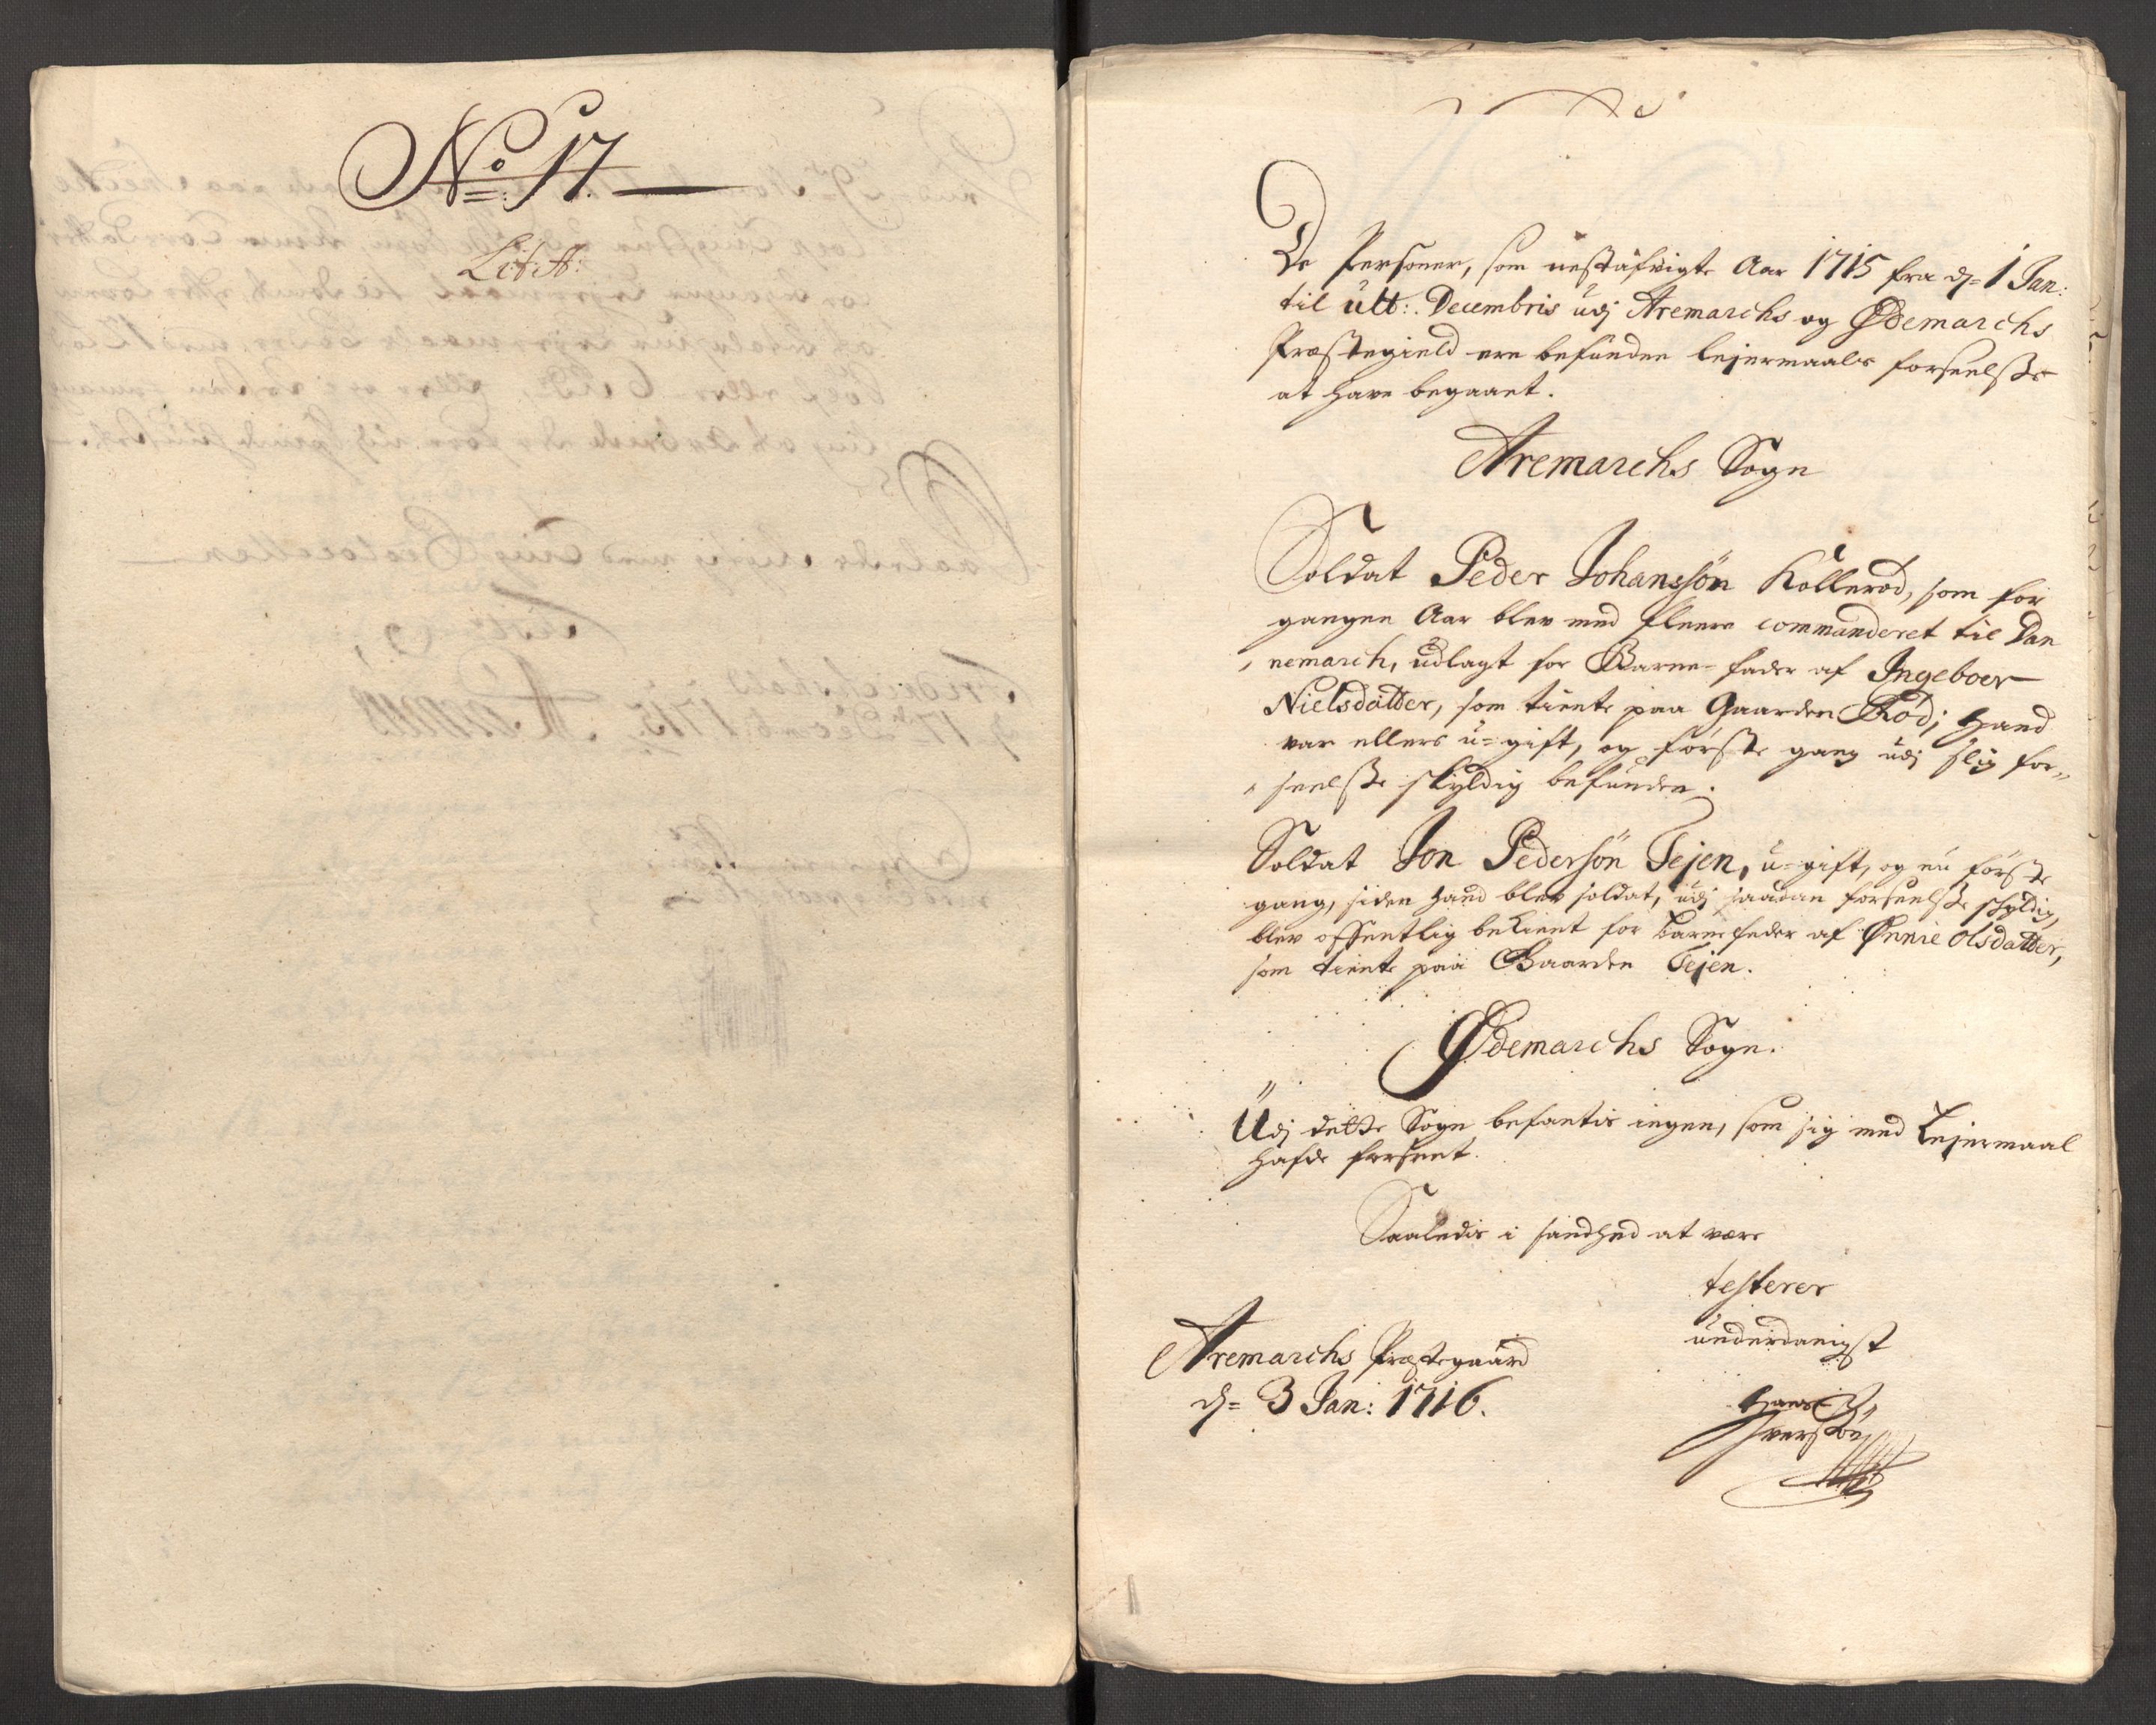 No: 17.
Lit: A:
De Personer, som nestafvigte Aar 1715 fra d= 1 Jan:
til ult:. Decembris udj Aremarchs og Ødemarchs
Præstegield ere befunden lejermaals forseelsse
at have begaaet.
Aremarchs Sogn
Soldat Peder Johanssön Kollerød, som for
gangen Aar blev med fleere commanderet til Dan
nemarch, udlagt for Barne-fader af Ingeboer
Nielsdatter, som tiente paa Gaarden Röd; hand
var ellers u=gift, og förste gang udj slig for„
seelsse skyldig befunden.
Soldat Jon Pedersön Tejen, u-gift, og nu förste
gang, siden hand blev soldat, udj saadan forseelsse skyldig,
blev offentlig bekient for barnefader af Ønnie Olsdatter,
som tiente paa Gaarden Tejen.
Ødemarchs Sogn.
Udj dette Sogn befantis ingen, som sig med Lejermaal
hafde forseet.
Saaledis i sandhed at være
testerer
underdanigst
Aremarchs Præstegaard
d= 3 Jan: 1716.
Hans
Iversön